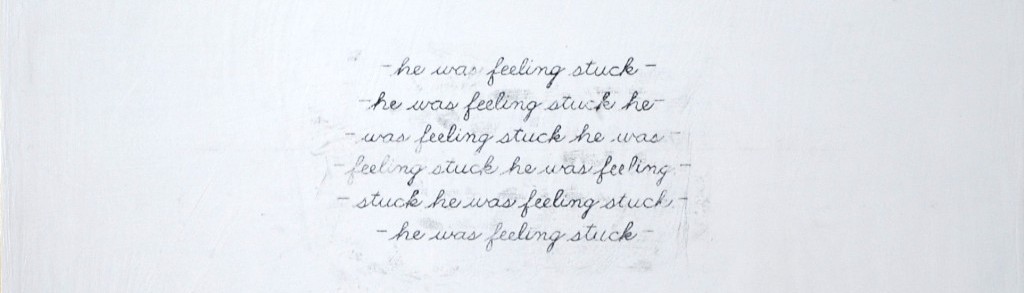 - he was feeling stuck -
- he was feeling stuck he -
- was feeling stuck he was -
- feeling stuck he was feeling -
- stuck he was feeling stuck -
- he was feeling stuck -